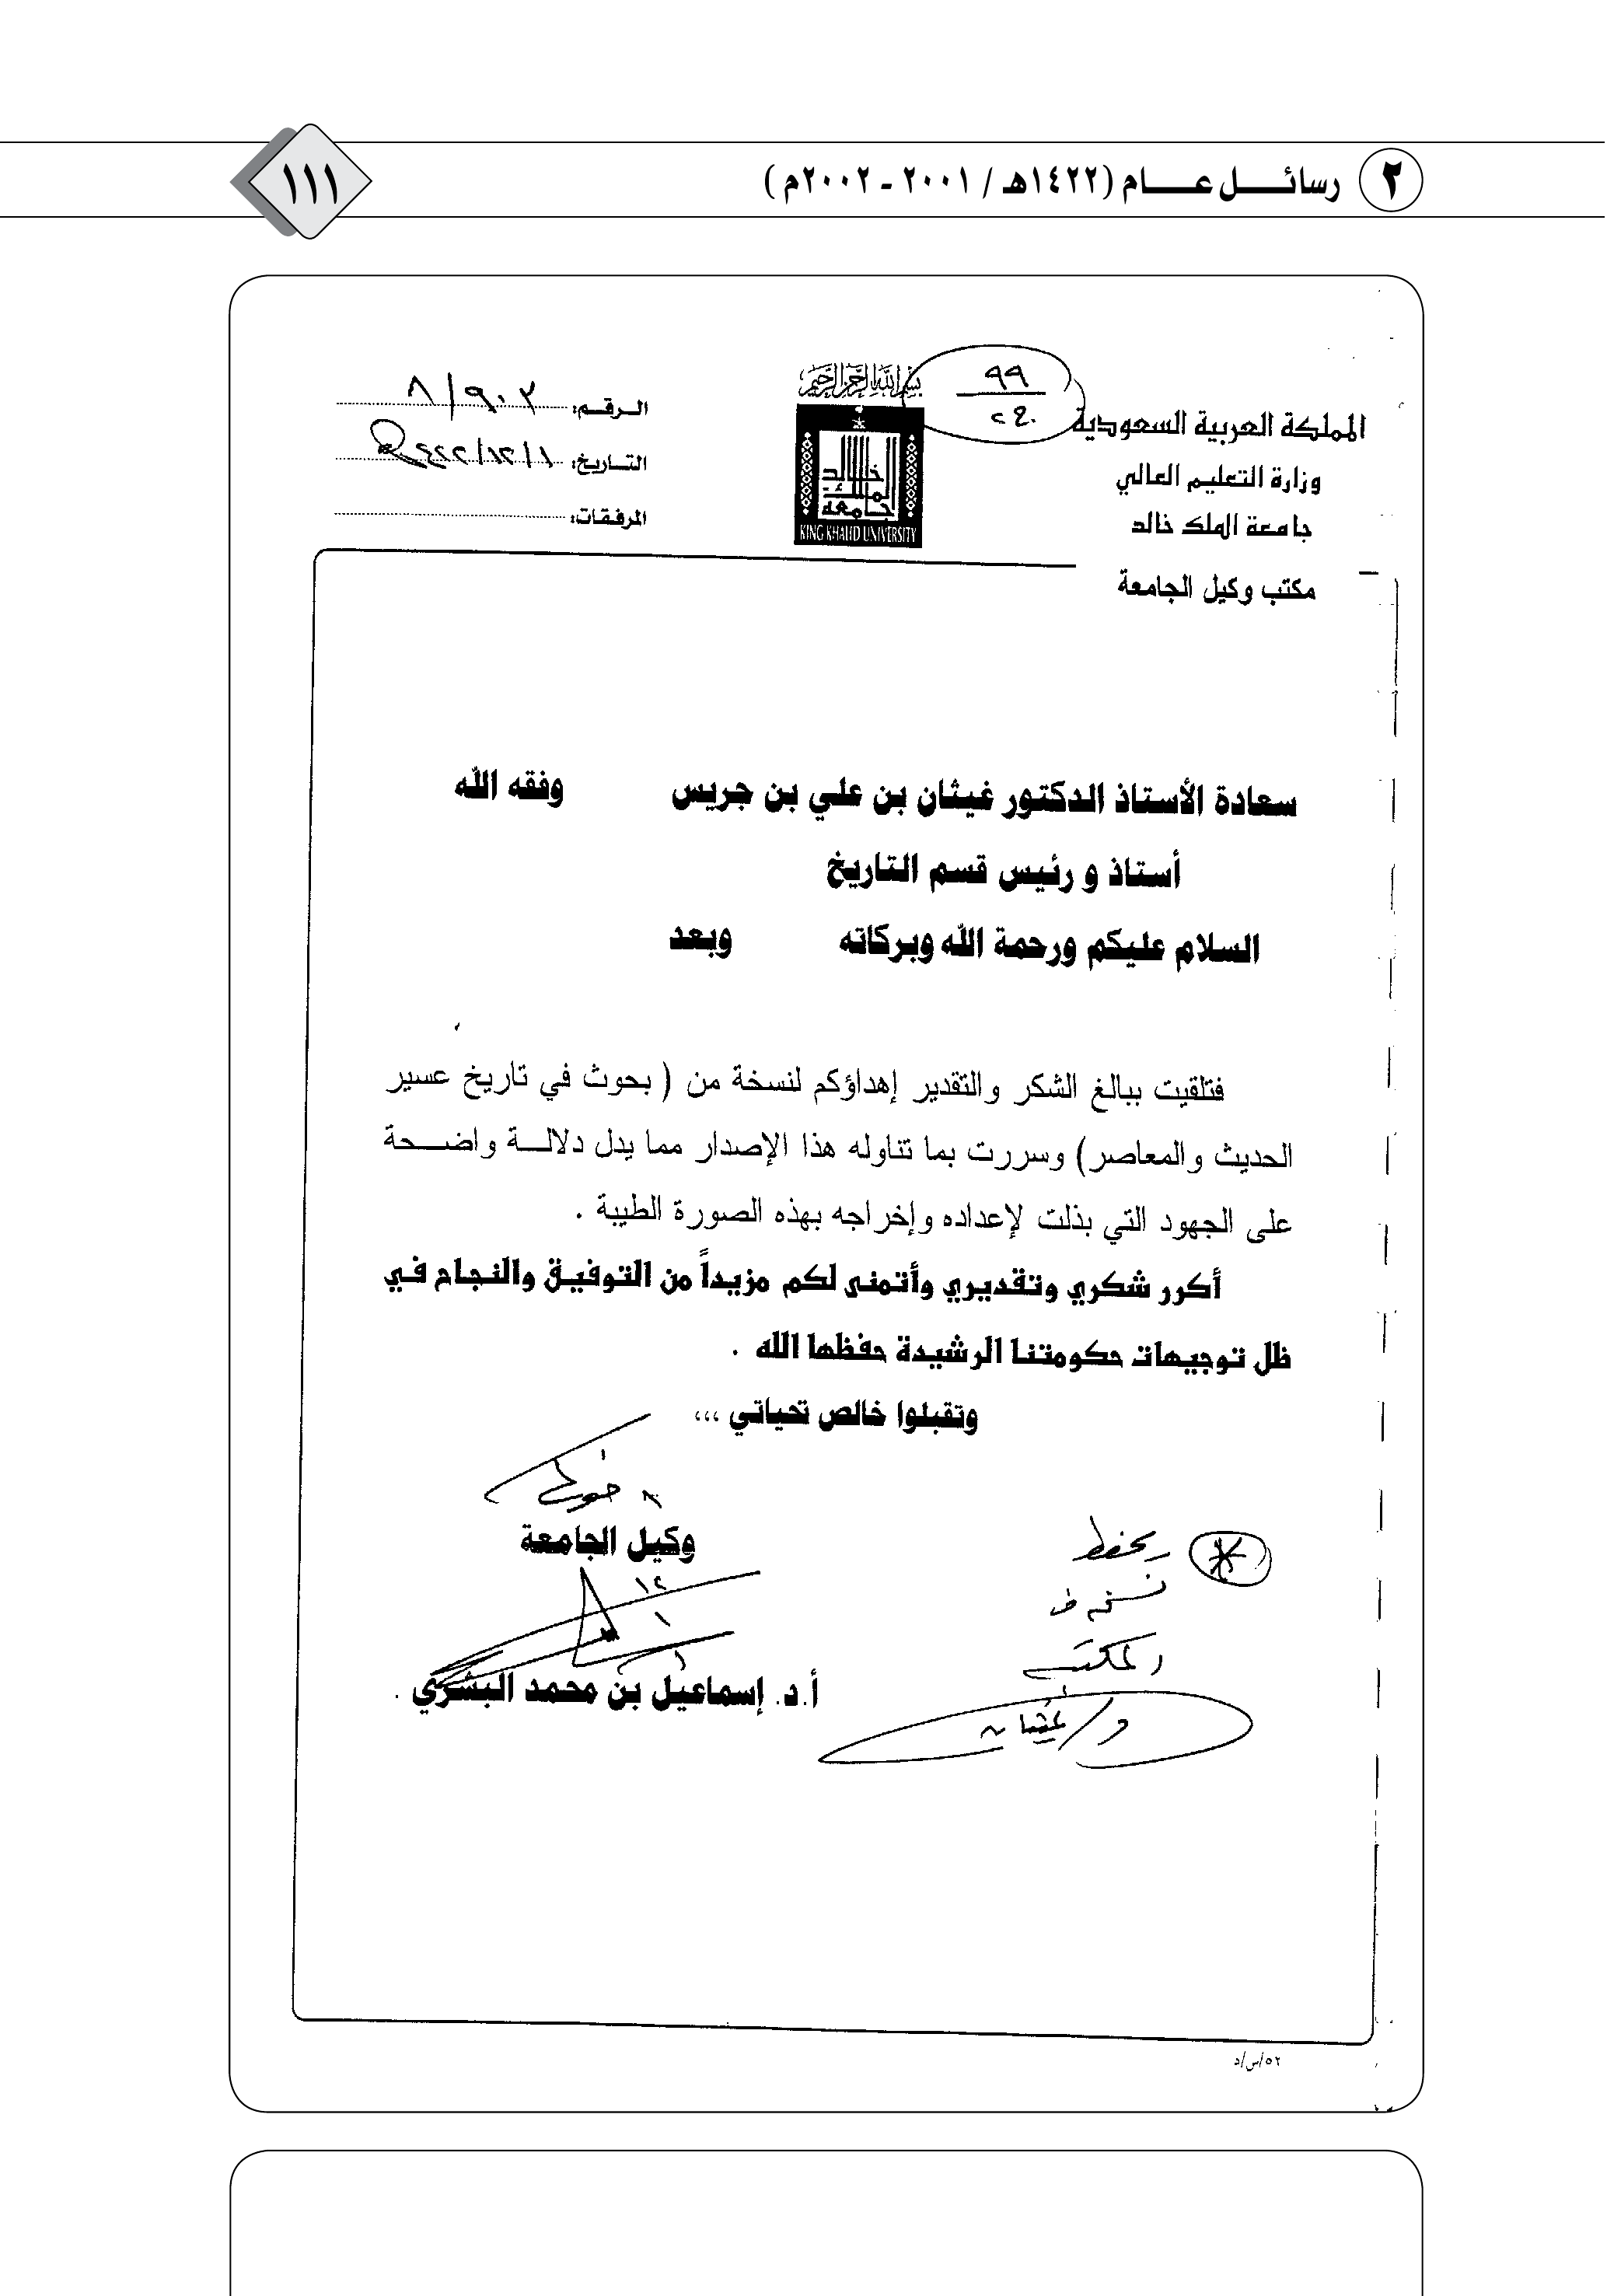 ٢ رسائــــل عــــام (١٤٢٢هـ / ٢٠٠١ - ٢٠٠٢م)
١١١
بسم الله الرحمن الرحيم
٩٩
المملكة العربية السعودية
وزارة التعليم العالي
جامعة الملك خالد
مكتب وكيل الجامعة
جامعة الملك خالد
KING KHALID UNIVERSITY
الـرقـم:
التـاريخ:
المرفقـات:
سعادة الأستاذ الدكتور غيثان بن علي بن جريس وفقه الله
أستاذ و رئيس قسم التاريخ
السلام عليكم ورحمة الله وبركاته وبعد
فتلقيت ببالغ الشكر والتقدير إهداؤكم لنسخة من ( بحوث في تاريخ عسير
الحديث والمعاصر) وسررت بما تناوله هذا الإصدار مما يدل دلالـــة واضـــحة
على الجهود التي بذلت لإعداده وإخراجه بهذه الصورة الطيبة .
أكرر شكري وتقديري وأتمنى لكم مزيداً من التوفيق والنجاح في
ظل توجيهات حكومتنا الرشيدة حفظها الله .
وتقبلوا خالص تحياتي ،،،
وكيل الجامعة
أ.د. إسماعيل بن محمد البشري .
يحفظ
نسخه في
المكتب
د/ غيثان
٥٢/س/د